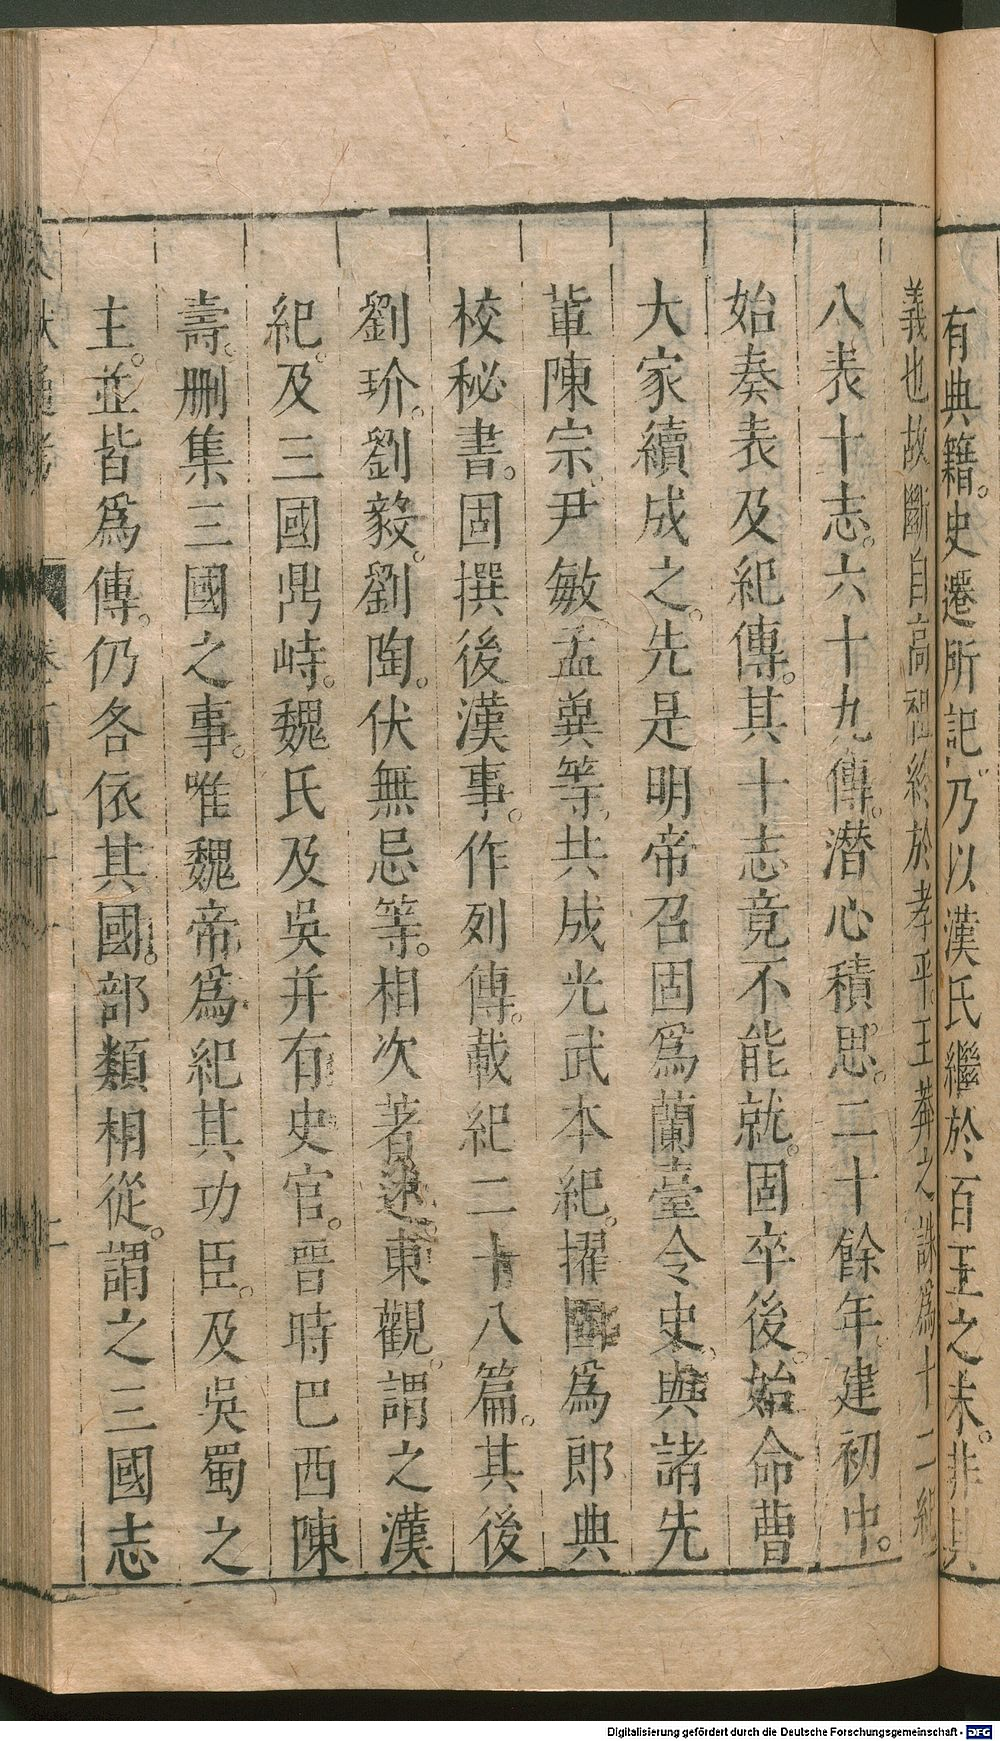 有典籍。史遷所記。乃以漢氏繼於百王之末。非其
義也故斷自高祖終於孝平。王莽之誅爲十二紀
八表十志。六十九傳。潛心積思。二十餘年。建初中。
始奏表及紀傳。其十志竟不能就。固卒後。始命曹
大家續成之。先是明帝召固爲蘭臺令史。與諸先
軰陳宗、尹敏孟兾等。共成光武本紀。擢固爲郎典
校秘書。固撰後漢事。作列傳。載紀二十八篇。其後
劉玠。劉毅。劉陶。伏無忌等。相次著述東觀。謂之漢
紀。及三國鼎峙。魏氏及吳并有史官。晋時巴西陳
壽。刪集三國之事。唯魏帝爲紀其功臣。及吳蜀之
主。並皆爲傳。仍各依其國。部類相從。謂之三國志
文獻通考
Digitalisierung gefördert durch die Deutsche Forschungsgemeinschaft - DFG